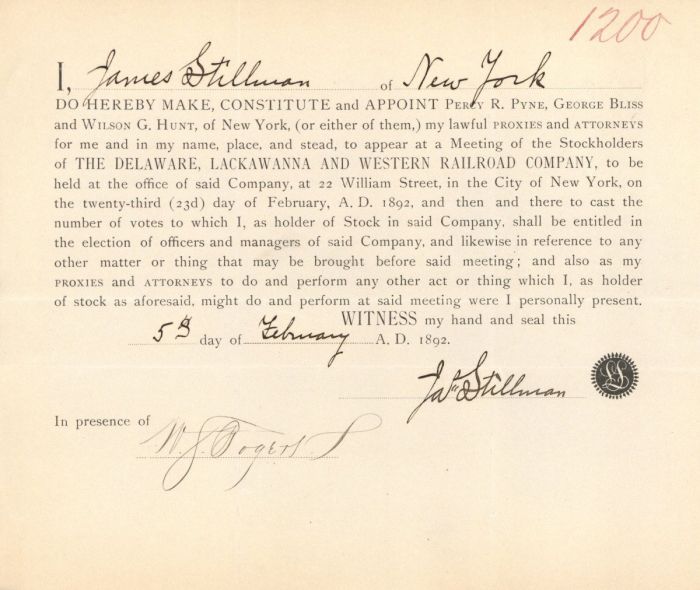 1200
I, James Stillman of New York
DO HEREBY MAKE, CONSTITUTE and APPOINT PERCY R. PYNE, GEORGE BLISS
and WILSON G. HUNT, of New York, (or either of them,) my lawful PROXIES and ATTORNEYS
for me and in my name, place, and stead, to appear at a Meeting of the Stockholders
of THE DELAWARE, LACKAWANNA AND WESTERN RAILROAD COMPANY, to be
held at the office of said Company, at 22 William Street, in the City of New York, on
the twenty-third (23d) day of February, A. D. 1892, and then and there to cast the
number of votes to which I, as holder of Stock in said Company, shall be entitled in
the election of officers and managers of said Company, and likewise in reference to any
other matter or thing that may be brought before said meeting; and also as my
PROXIES and ATTORNEYS to do and perform any other act or thing which I, as holder
of stock as aforesaid, might do and perform at said meeting were I personally present.
WITNESS my hand and seal this
5th day of February A. D. 1892.
Jas Stillman
LS
In presence of
W. J.